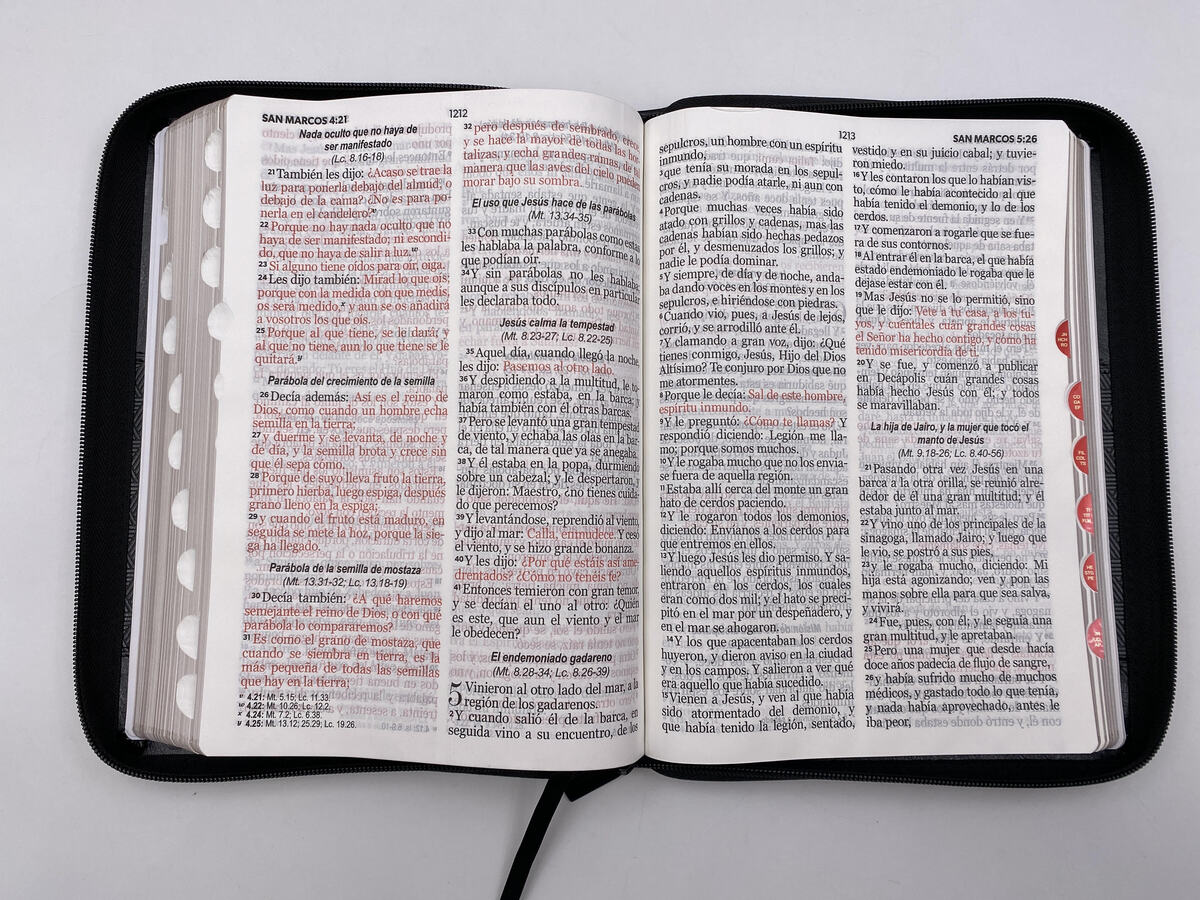 SAN MARCOS 4:21
1212
Nada oculto que no haya de
ser manifestado
(Lc. 8.16-18)
21 También les dijo: ¿Acaso se trae la
luz para ponerla debajo del almud, o
debajo de la cama? ¿No es para po-
nerla en el candelero?
22 Porque no hay nada oculto que no
haya de ser manifestado; ni escondi-
do, que no haya de salir a luz.
23 Si alguno tiene oídos para oír, oiga.
24 Les dijo también: Mirad lo que oís;
porque con la medida con que medís,
os será medido,x y aun se os añadirá
a vosotros los que oís.
25 Porque al que tiene, se le dará; y
al que no tiene, aun lo que tiene se le
quitará.y
Parábola del crecimiento de la semilla
26 Decía además: Así es el reino de
Dios, como cuando un hombre echa
semilla en la tierra;
27 y duerme y se levanta, de noche y
de día, y la semilla brota y crece sin
que él sepa cómo.
28 Porque de suyo lleva fruto la tierra,
primero hierba, luego espiga, después
grano lleno en la espiga;
29 y cuando el fruto está maduro, en
seguida se mete la hoz, porque la sie-
ga ha llegado.
Parábola de la semilla de mostaza
(Mt. 13.31-32; Lc. 13.18-19)
30 Decía también: ¿A qué haremos
semejante el reino de Dios, o con qué
parábola lo compararemos?
31 Es como el grano de mostaza, que
cuando se siembra en tierra, es la
más pequeña de todas las semillas
que hay en la tierra;
4.21: Mt. 5.15; Lc. 11.33.
4.22: Mt. 10.26; Lc. 12.2.
x 4.24: Mt. 7.2; Lc. 6.38.
y 4.25: Mt. 13.12; 25.29; Lc. 19.26.
32 pero después de sembrado, crece,
y se hace la mayor de todas las hor-
talizas, y echa grandes ramas, de tal
manera que las aves del cielo pueden
morar bajo su sombra.
El uso que Jesús hace de las parábolas
(Mt. 13.34-35)
33 Con muchas parábolas como estas
les hablaba la palabra, conforme a lo
que podían oír.
34 Y sin parábolas no les hablaba;
aunque a sus discípulos en particular
les declaraba todo.
Jesús calma la tempestad
(Mt. 8.23-27; Lc. 8.22-25)
35 Aquel día, cuando llegó la noche,
les dijo: Pasemos al otro lado.
36 Y despidiendo a la multitud, le to-
maron como estaba, en la barca; y
había también con él otras barcas.
37 Pero se levantó una gran tempestad
de viento, y echaba las olas en la bar-
ca, de tal manera que ya se anegaba.
38 Y él estaba en la popa, durmiendo
sobre un cabezal; y le despertaron, y
le dijeron: Maestro, ¿no tienes cuida-
do que perecemos?
39 Y levantándose, reprendió al viento,
y dijo al mar: Calla, enmudece. Y cesó
el viento, y se hizo grande bonanza.
40 Y les dijo: ¿Por qué estáis así ame-
drentados? ¿Cómo no tenéis fe?
41 Entonces temieron con gran temor,
y se decían el uno al otro: ¿Quién
es este, que aun el viento y el mar
le obedecen?
El endemoniado gadareno
(Mt. 8.28-34; Lc. 8.26-39)
5 Vinieron al otro lado del mar, a la
región de los gadarenos.
2 Y cuando salió él de la barca, en
seguida vino a su encuentro, de los
1213
SAN MARCOS 5:26
sepulcros, un hombre con un espíritu
inmundo,
3 que tenía su morada en los sepul-
cros, y nadie podía atarle, ni aun con
cadenas.
4 Porque muchas veces había sido
atado con grillos y cadenas, mas las
cadenas habían sido hechas pedazos
por él, y desmenuzados los grillos; y
nadie le podía dominar.
5 Y siempre, de día y de noche, anda-
ba dando voces en los montes y en los
sepulcros, e hiriéndose con piedras.
6 Cuando vio, pues, a Jesús de lejos,
corrió, y se arrodilló ante él.
7 Y clamando a gran voz, dijo: ¿Qué
tienes conmigo, Jesús, Hijo del Dios
Altísimo? Te conjuro por Dios que no
me atormentes.
8 Porque le decía: Sal de este hombre,
espíritu inmundo.
9 Y le preguntó: ¿Cómo te llamas? Y
respondió diciendo: Legión me lla-
mo; porque somos muchos.
10 Y le rogaba mucho que no los envia-
se fuera de aquella región.
11 Estaba allí cerca del monte un gran
hato de cerdos paciendo.
12 Y le rogaron todos los demonios,
diciendo: Envíanos a los cerdos para
que entremos en ellos.
13 Y luego Jesús les dio permiso. Y sa-
liendo aquellos espíritus inmundos,
entraron en los cerdos, los cuales
eran como dos mil; y el hato se preci-
pitó en el mar por un despeñadero, y
en el mar se ahogaron.
14 Y los que apacentaban los cerdos
huyeron, y dieron aviso en la ciudad
y en los campos. Y salieron a ver qué
era aquello que había sucedido.
15 Vienen a Jesús, y ven al que había
sido atormentado del demonio, y
que había tenido la legión, sentado,
vestido y en su juicio cabal; y tuvie-
ron miedo.
16 Y les contaron los que lo habían vis-
to, cómo le había acontecido al que
había tenido el demonio, y lo de los
cerdos.
17 Y comenzaron a rogarle que se fue-
ra de sus contornos.
18 Al entrar él en la barca, el que había
estado endemoniado le rogaba que le
dejase estar con él.
19 Mas Jesús no se lo permitió, sino
que le dijo: Vete a tu casa, a los tu-
yos, y cuéntales cuán grandes cosas
el Señor ha hecho contigo, y cómo ha
tenido misericordia de ti.
20 Y se fue, y comenzó a publicar
en Decápolis cuán grandes cosas
había hecho Jesús con él; y todos
se maravillaban.
La hija de Jairo, y la mujer que tocó el
manto de Jesús
(Mt. 9.18-26; Lc. 8.40-56)
21 Pasando otra vez Jesús en una
barca a la otra orilla, se reunió alre-
dedor de él una gran multitud; y él
estaba junto al mar.
22 Y vino uno de los principales de la
sinagoga, llamado Jairo; y luego que
le vio, se postró a sus pies,
23 y le rogaba mucho, diciendo: Mi
hija está agonizando; ven y pon las
manos sobre ella para que sea salva,
y vivirá.
24 Fue, pues, con él; y le seguía una
gran multitud, y le apretaban.
25 Pero una mujer que desde hacía
doce años padecía de flujo de sangre,
26 y había sufrido mucho de muchos
médicos, y gastado todo lo que tenía,
y nada había aprovechado, antes le
iba peor,
CO
GA
EF
FIL
COL
TS
HE
STG
PE